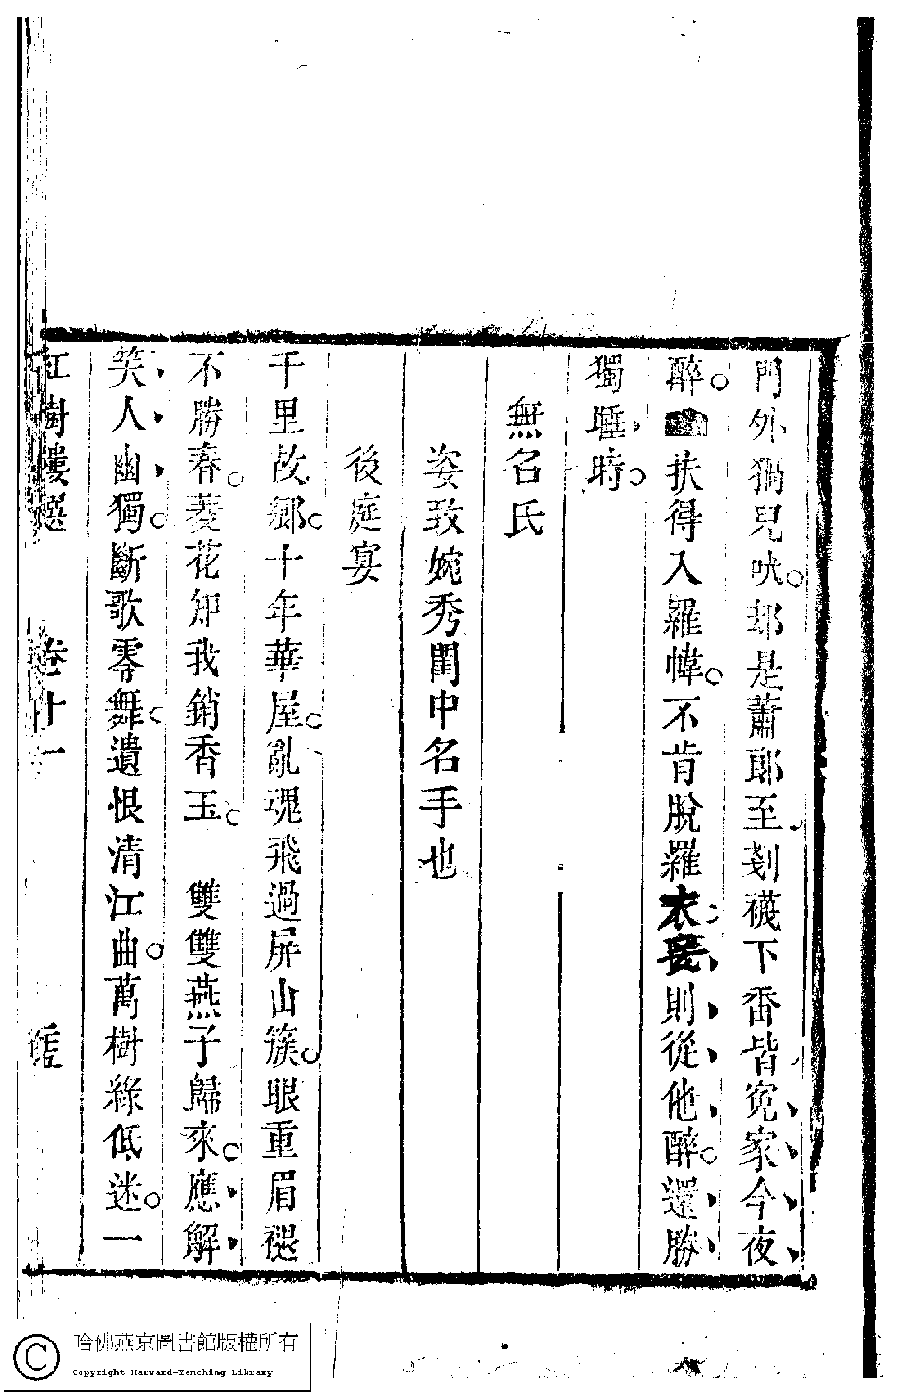 門外猧兒吠却是蕭郎至剗襪下香皆寃家今夜
醉　扶得入羅幃不肯脫羅衣𮞉則從他醉還勝
獨睡時
無名氏
姿致婉秀閨中名手也
後庭宴
千里故鄉十年華屋亂魂飛過屏山簇眼重眉褪
不勝春菱花知我銷香玉　雙雙燕子歸來應解
笑人幽獨斷歌零舞遺恨清江曲萬樹綠低迷一
紅樹樓選　卷十一
哈佛燕京圖書館版權所有
Copyright Harvard-Yenching Library